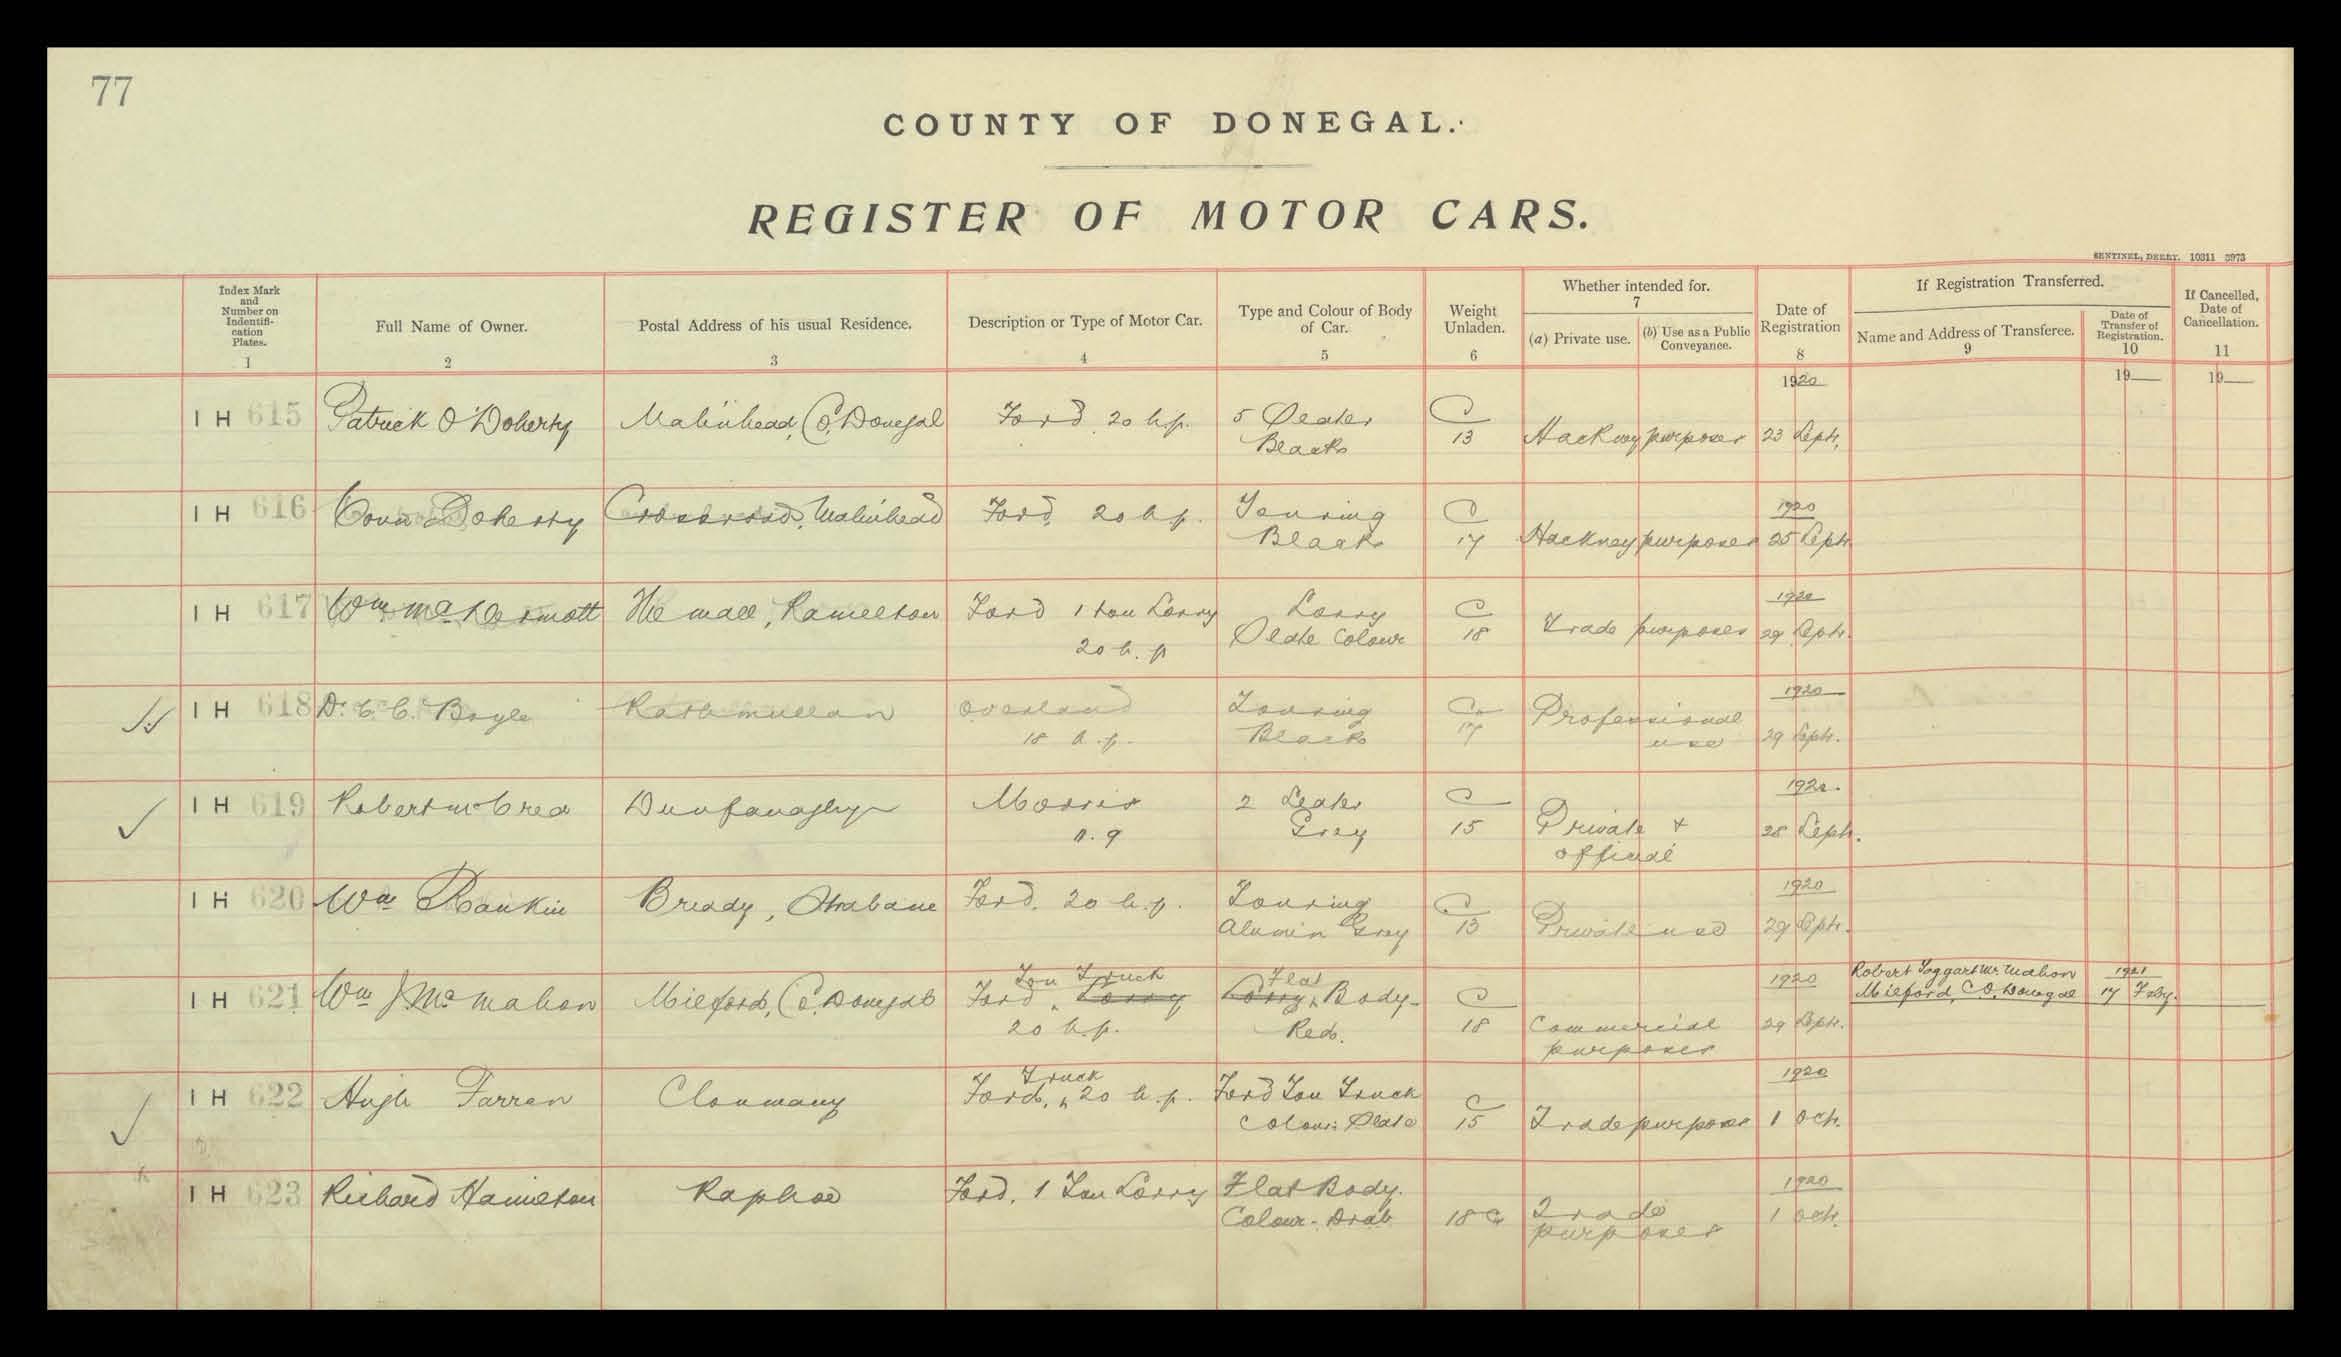 77
COUNTY OF DONEGAL.
REGISTER OF MOTOR CARS.
SENTINEL, DERRY. 10311 3973
Index Mark and Number on Indentifi-cation Plates. 1
Full Name of Owner. 2
Postal Address of his usual Residence. 3
Description or Type of Motor Car. 4
Type and Colour of Body of Car. 5
Weight Unladen. 6
Whether intended for. 7
(a) Private use.
(b) Use as a Public Conveyance.
Date of Registration 8
If Registration Transferred.
Name and Address of Transferee. 9
Date of Transfer of Registration. 10
If Cancelled, Date of Cancellation. 11
1920 19 19
I H 615 Patrick O'Doherty Malinhead, Co. Donegal Ford 20 h.p. 5 Seater C Hackney purposes 23 Sept.
Black 13
1920
I H 616 Conn Doherty Crossroad, Malinhead Ford, 20 h.p. Touring C Hackney purposes 25 Sept.
Black 17
1920
I H 617 Wm McDermott The Mall, Ramelton Ford 1 ton Lorry Lorry C Trade purposes 29 Sept.
20 h.p. Slate Colour 18
1920
I H 618 Dr. C. C. Boyle Rathmullan Overland Touring C Professional
18 h.p. Black 17 use 29 Sept.
1920.
I H 619 Robert McCrea Dunfanaghy Morris 2 Seater C Private +
11.9 Grey 15 official 28 Sept.
1920
I H 620 Wm Rankin Bready, Strabane Ford. 20 h.p. Touring C
Alumin Grey 13 Private use 29 Sept.
Ton Truck Flat 1920 Robert Taggart McMahon 1921
I H 621 Wm J McMahon Milford, Co. Donegal Ford, Lorry Lorry Body - C Milford, CO. Donegal 17 Feby.
20 h.p. Red. 18 Commercial 29 Sept.
purposes
Truck 1920
I H 622 Hugh Farren Clonmany Ford, 20 h.p. Ford Ton Truck C
Colour: Slate 15 Trade purposes 1 Oct.
1920
I H 623 Richard Hamilton Raphoe Ford, 1 Ton Lorry Flat Body.
Colour - Drab 18 C Trade 1 Oct.
purposes